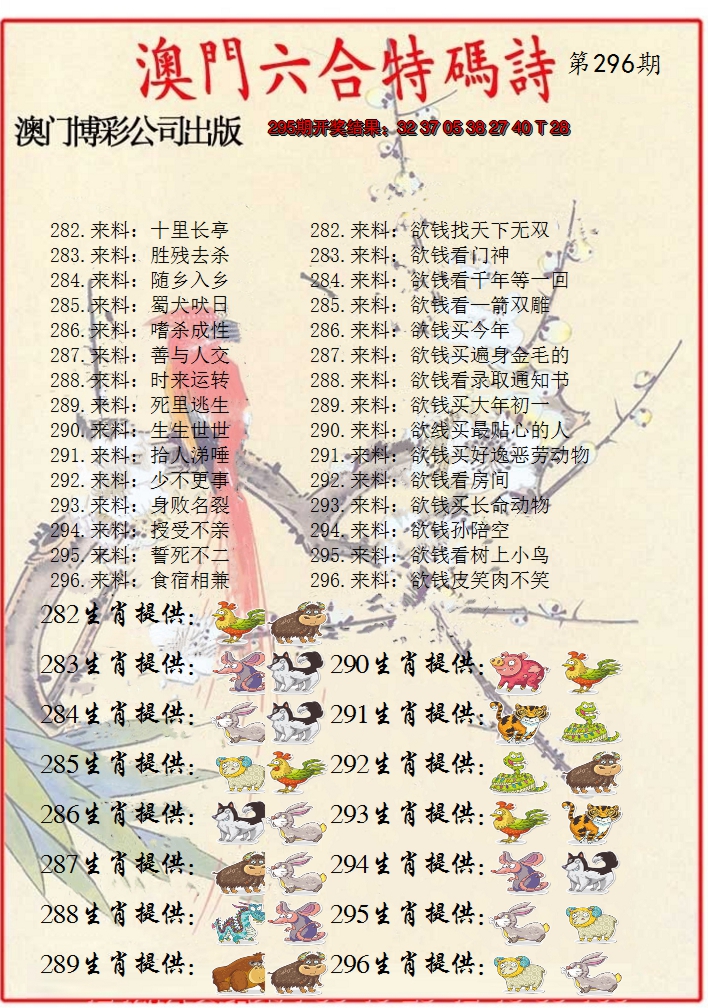 澳門六合特碼詩 第296期
澳门博彩公司出版 295期开奖结果：32 37 05 38 27 40 T 28
282.来料：十里长亭 282.来料：欲钱找天下无双
283.来料：胜残去杀 283.来料：欲钱看门神
284.来料：随乡入乡 284.来料：欲钱看千年等一回
285.来料：蜀犬吠日 285.来料：欲钱看一箭双雕
286.来料：嗜杀成性 286.来料：欲钱买今年
287.来料：善与人交 287.来料：欲钱买遍身金毛的
288.来料：时来运转 288.来料：欲钱看录取通知书
289.来料：死里逃生 289.来料：欲钱买大年初一
290.来料：生生世世 290.来料：欲线买最贴心的人
291.来料：拾人涕唾 291.来料：欲钱买好逸恶劳动物
292.来料：少不更事 292.来料：欲钱看房间
293.来料：身败名裂 293.来料：欲钱买长命动物
294.来料：授受不亲 294.来料：欲钱孙陪空
295.来料：誓死不二 295.来料：欲钱看树上小鸟
296.来料：食宿相兼 296.来料：欲钱皮笑肉不笑
282生肖提供：
283生肖提供： 290生肖提供：
284生肖提供： 291生肖提供：
285生肖提供： 292生肖提供：
286生肖提供： 293生肖提供：
287生肖提供： 294生肖提供：
288生肖提供： 295生肖提供：
289生肖提供： 296生肖提供：